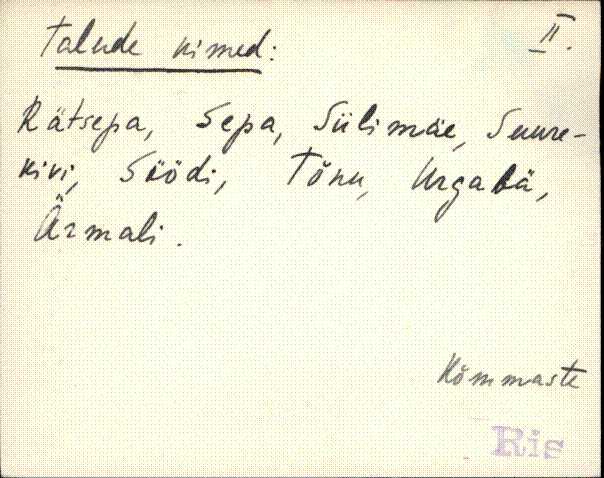 Talude nimed:
II.
Rätsepa, Sepa, Sülimäe, Suure-
kivi, Söödi, Tõnu, Urgalä,
Ärmali.
Kõmmaste
Ris